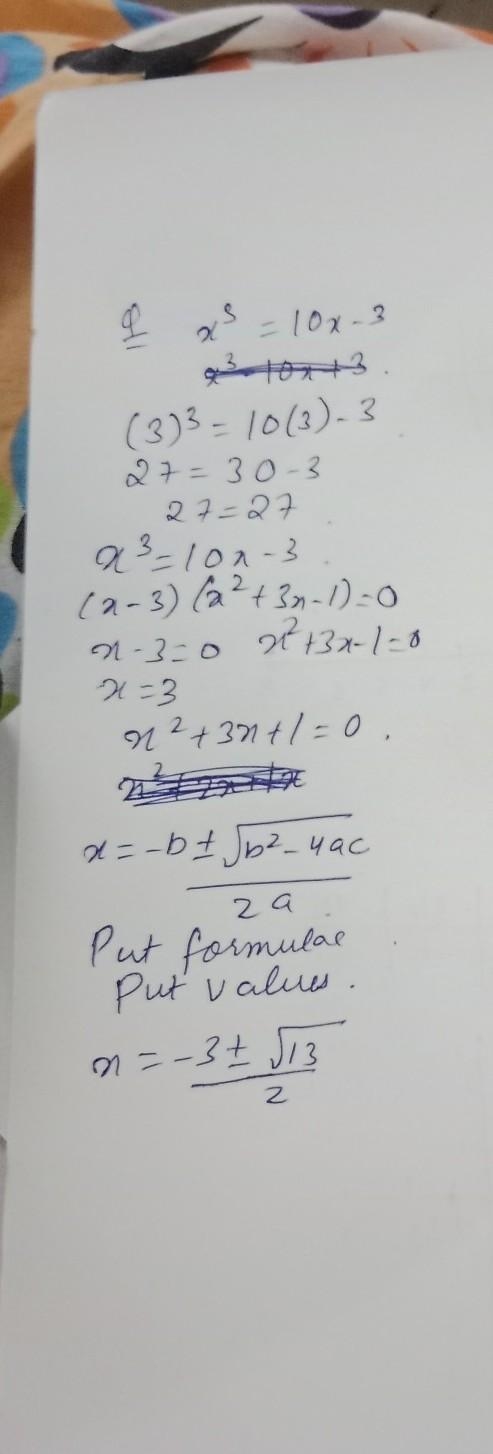 Q x³ = 10x - 3
x³ - 10x + 3 .
(3)³ = 10(3) - 3
27 = 30 - 3
27 = 27
x³ = 10x - 3 .
(x - 3) (x² + 3x - 1) = 0
x - 3 = 0 x² + 3x - 1 = 0
x = 3
x² + 3x + 1 = 0 .
x = -b ± √b² - 4ac
2a
Put formulae .
Put values .
x = -3 ± √13
2